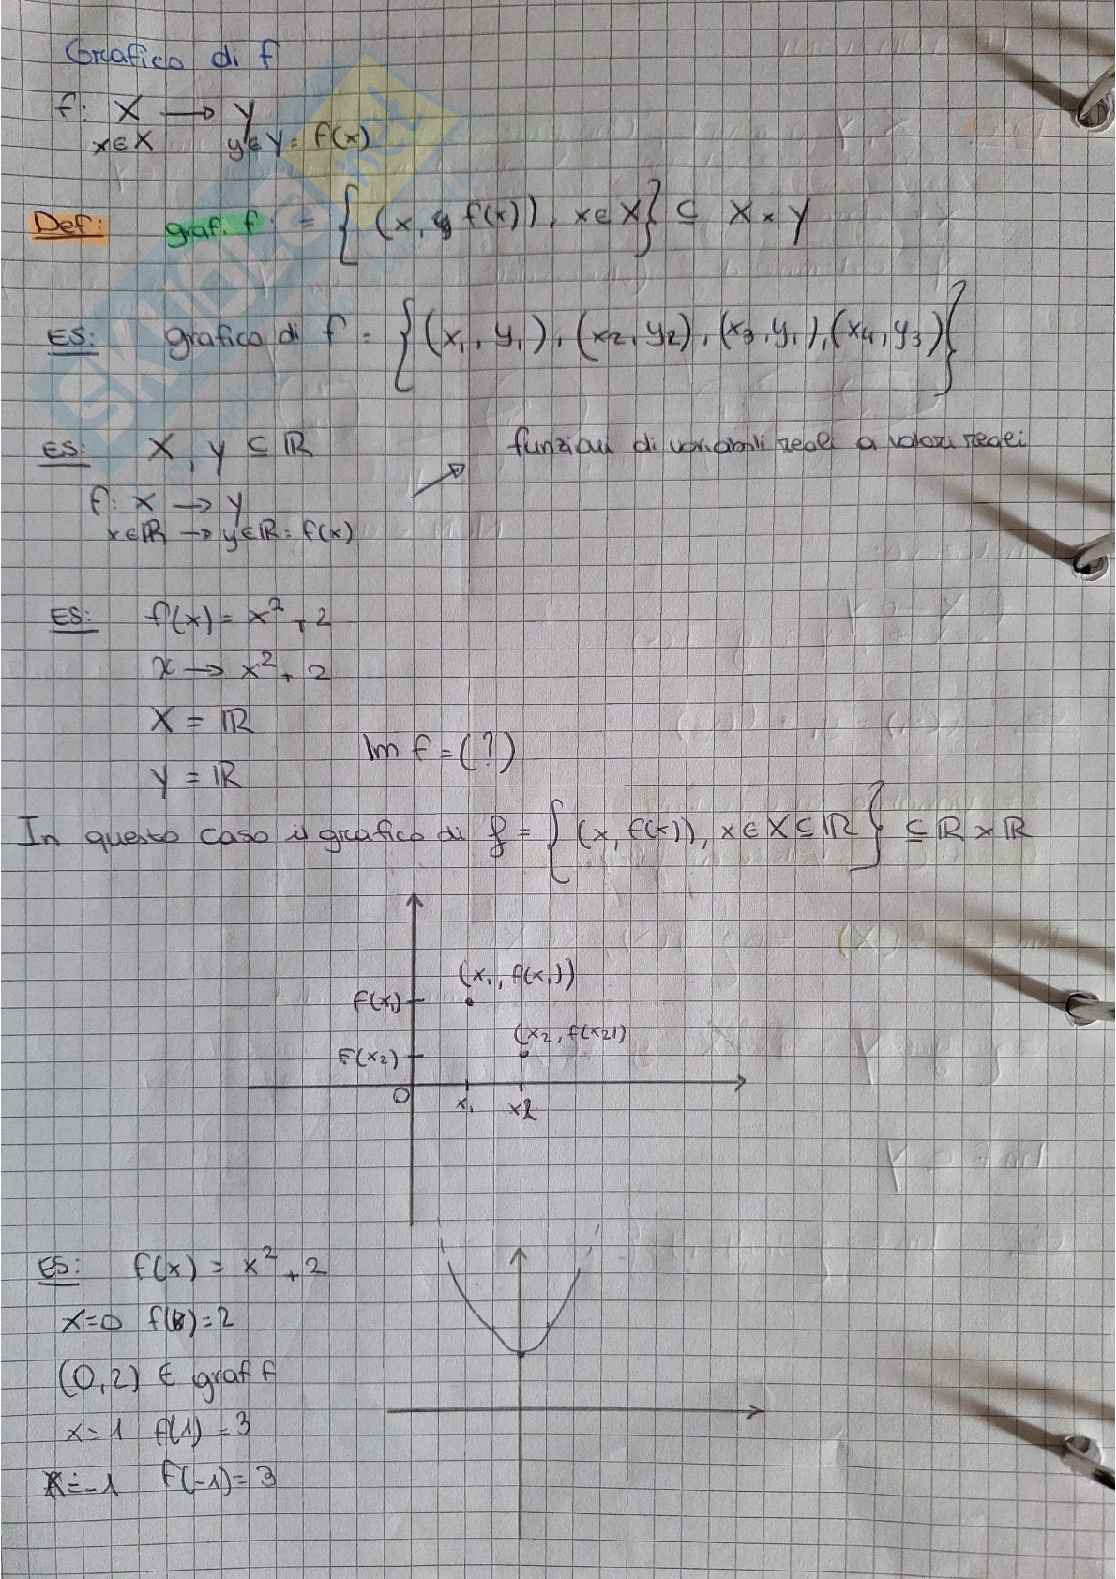 Grafico di f
f: X → Y
x∈X y∈Y = f(x)
Def: graf. f = {(x, f(x)), x∈X} ⊆ X × Y
ES: grafico di f = {(x1, y1), (x2, y2), (x3, y1), (x4, y3)}
ES: X, Y ⊆ ℝ funzioni di variabili reali a valori reali
f: X → Y
x∈ℝ → y∈ℝ = f(x)
ES: f(x) = x² + 2
x → x² + 2
X = ℝ
Im f = (?)
Y = ℝ
In questo caso il grafico di f = {(x, f(x)), x∈X⊆ℝ} ⊆ ℝ × ℝ
(x1, f(x1))
f(x1)
(x2, f(x2))
F(x2)
O x1 x2
ES: f(x) = x² + 2
x=0 f(0)=2
(0,2) ∈ graf f
x=1 f(1)=3
x=-1 f(-1)=3
SKUOLA.net